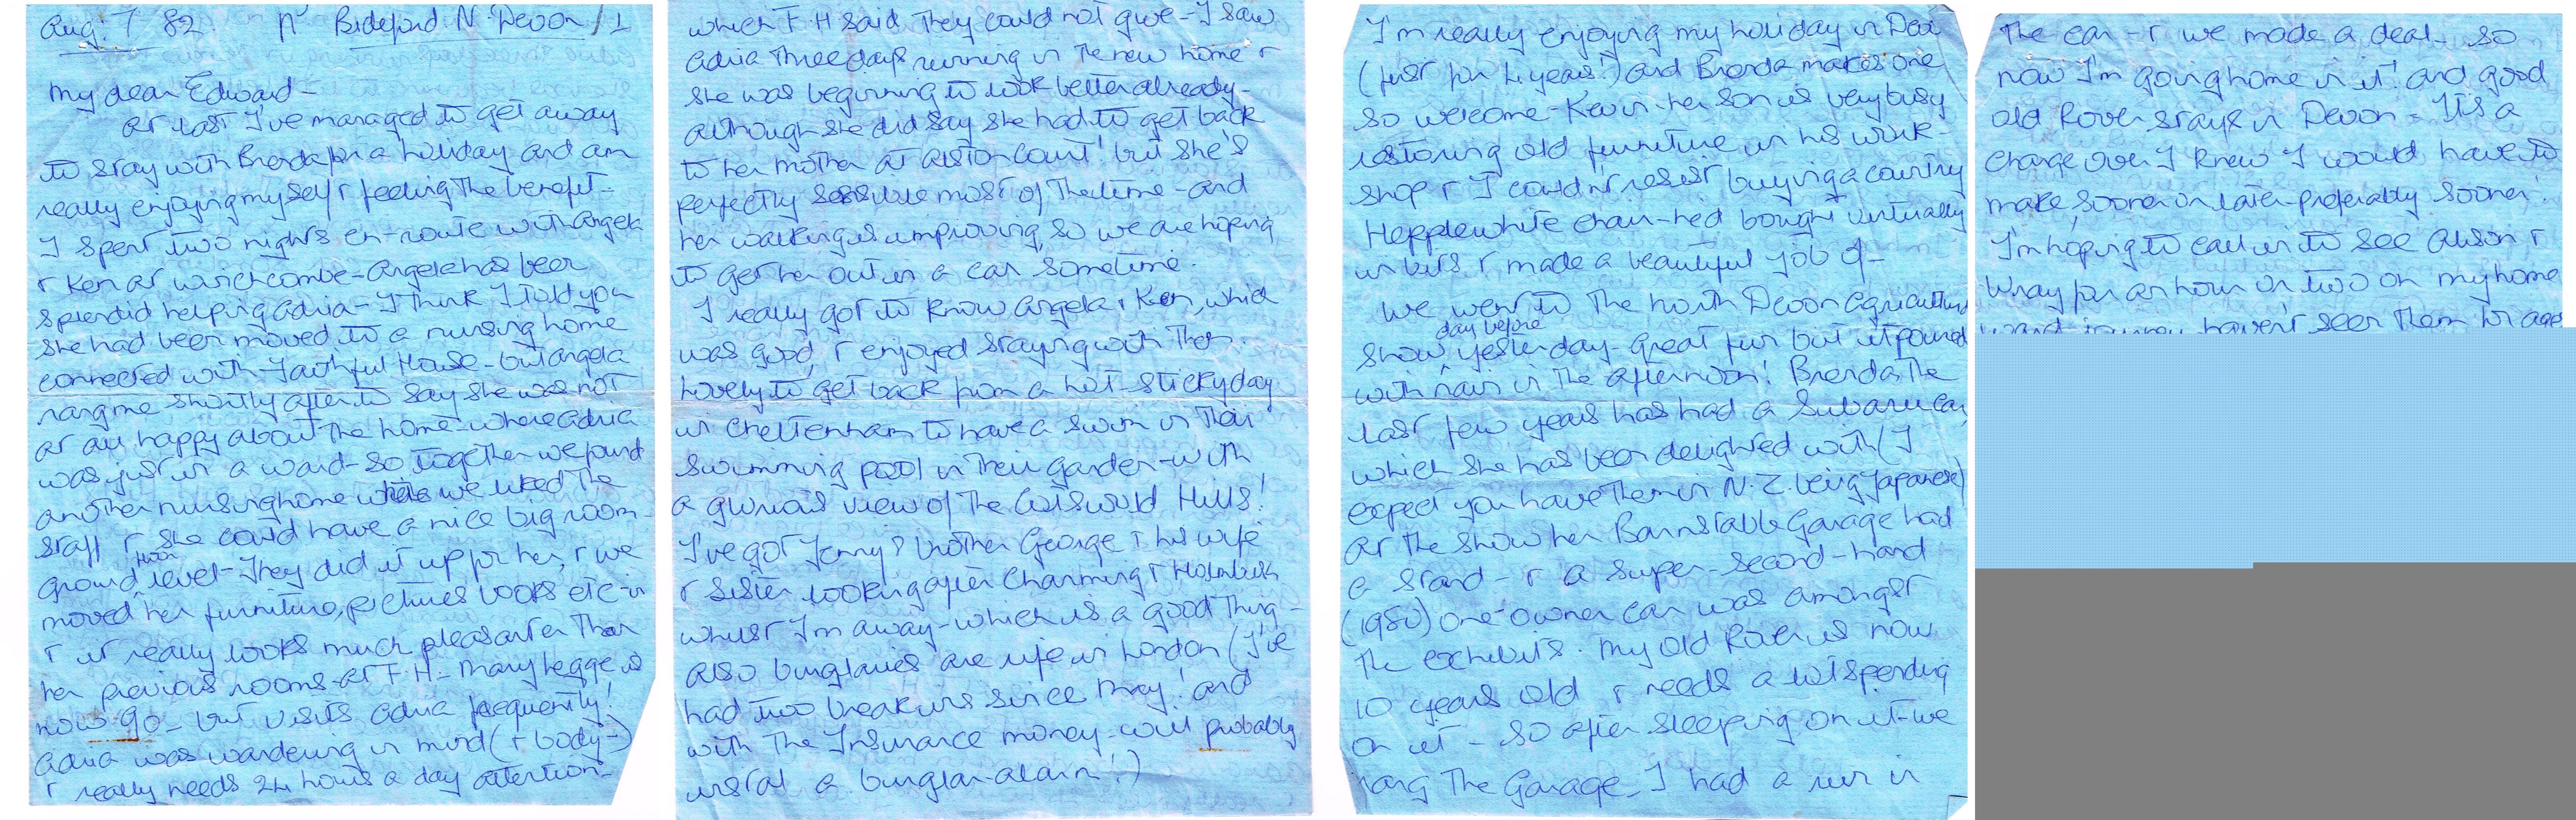 Aug. 7 / 82. Nr Bideford N. Devon / 1
My dear Edward -
at last I've managed to get away
to stay with Brenda for a holiday and am
really enjoying myself & feeling the benefit -
I spent two nights en-route with Angela
& Ken at Winchcombe - Angela has been
splendid helping Adria - I think I told you
she had been moved to a nursing home
connected with Faithful House - but Angela
rang me shortly after to say she was not
at all happy about the home - where Adria
was just in a ward - so together we found
another nursing home where we liked the
staff & she could have a nice big room -
ground floor level - They did it up for her, & we
moved her furniture, pictures books etc - in
& it really looks much pleasanter than
her previous rooms - at F.H - Mary Legge is
now 90 - but visits Adria frequently!
Adria was wandering in mind (& body -)
& really needs 24 hours a day attention -
which F.H said they could not give - I saw
Adria three days running in the new home &
she was beginning to look better already -
although she did say she had to get back
to her mother at Alston Court! but she's
perfectly sensible most of the time - and
her walking is improving, so we are hoping
to get her out in a car sometime.
I really got to know Angela & Ken, which
was good, & enjoyed staying with them.
lovely to get back from a hot sticky day
in Cheltenham to have a swim in their
swimming pool in their garden - with
a glorious view of the Cotswold Hills!
I've got Jenny's brother George & his wife
& sister looking after Charming & Holmbush
whilst I'm away - which is a good thing -
also burglaries are rife in London (I've
had two break ins since May! and
with the Insurance money - will probably
instal a burglar-alarm!)
I'm really enjoying my holiday in Devon
(first for 4 years!) and Brenda makes one
so welcome - Kevin her son is very busy
restoring old furniture in his work-
shop & I couldn't resist buying a country
Hepplewhite chair - he'd bought virtually
in bits & made a beautiful job of -
We went to the North Devon Agricultural
Show day before yesterday - great fun but it poured
with rain in the afternoon! Brenda, the
last few years has had a Subaru car,
which she has been delighted with (I
expect you have them in N.Z. being Japanese)
at the show her Barnstable Garage had
a stand - & a super-second-hand
(1980) one-owner car was amongst
the exhibits. My old Rover is now
10 years old & needs a lot spending
on it - so after sleeping on it - we
rang the Garage - I had a run in
the car - & we made a deal - so
now I'm going home in it! and good
old Rover stays in Devon - It's a
change over I knew I would have to
make, sooner or later - preferably sooner!
I'm hoping to call in to see Alison &
Wray for an hour or two on my home
ward journey, haven't seen them for ages